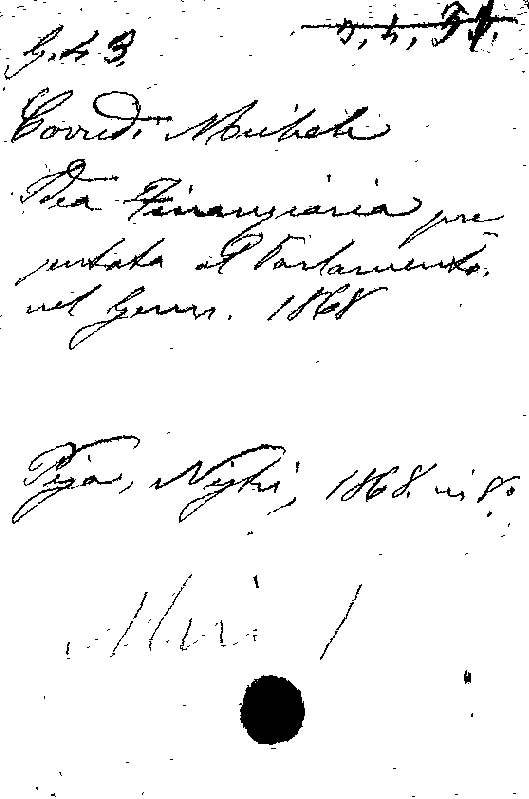 G. 4 3.
Corredi Michele
Idea Finanziaria pre
sentata al Parlamento
nel Genn. 1868
Pisa, Nistri, 1868. in 8º